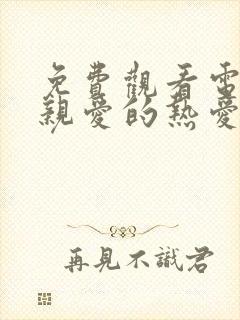 免費觀看電
親愛的熱愛
再見不識君